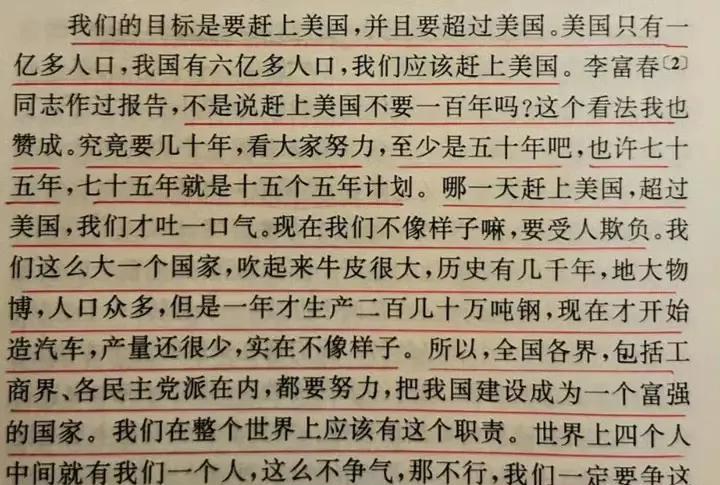 我们的目标是要赶上美国，并且要超过美国。美国只有一
亿多人口，我国有六亿多人口，我们应该赶上美国。李富春〔2〕
同志作过报告，不是说赶上美国不要一百年吗？这个看法我也
赞成。究竟要几十年，看大家努力，至少是五十年吧，也许七十
五年，七十五年就是十五个五年计划。哪一天赶上美国，超过
美国，我们才吐一口气。现在我们不像样子嘛，要受人欺负。我
们这么大一个国家，吹起来牛皮很大，历史有几千年，地大物
博，人口众多，但是一年才生产二百几十万吨钢，现在才开始
造汽车，产量还很少，实在不像样子。所以，全国各界，包括工
商界、各民主党派在内，都要努力，把我国建设成为一个富强
的国家。我们在整个世界上应该有这个职责。世界上四个人
中间就有我们一个人，这么不争气，那不行，我们一定要争这